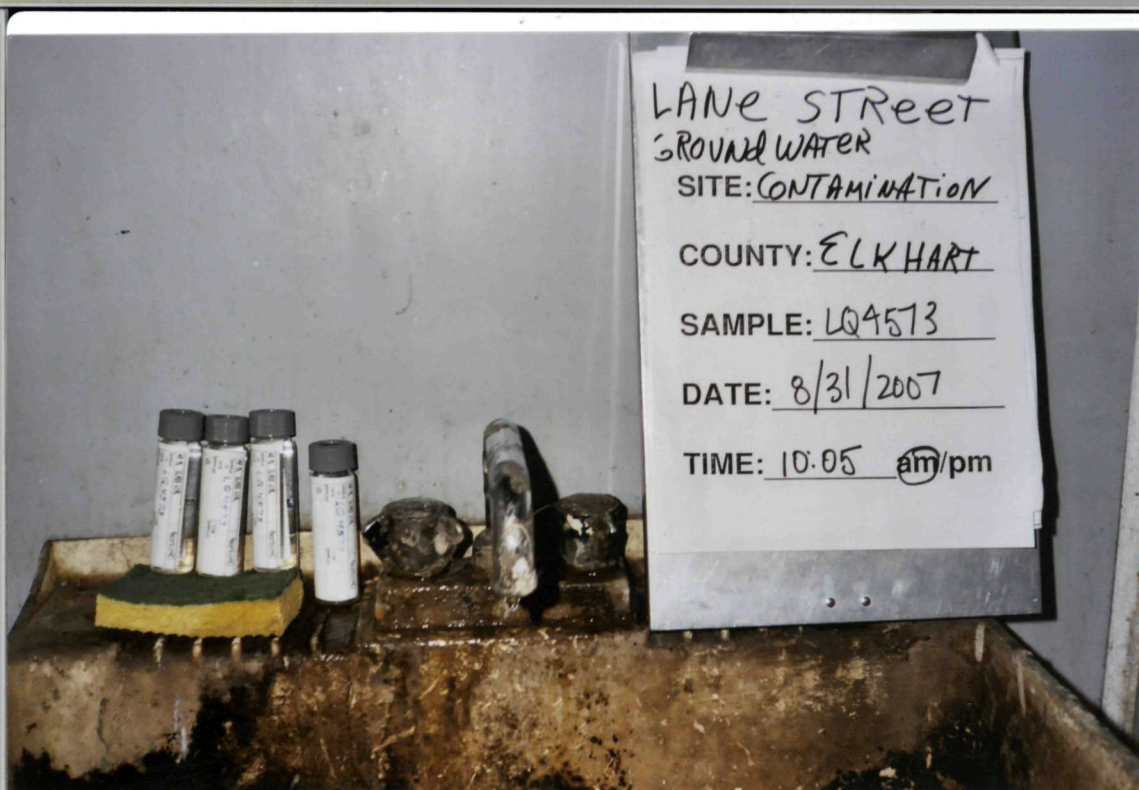 LANe STReeT
GROUNd WATeR
SITE: CONTAMiNATioN
COUNTY: ELKHART
SAMPLE: LQ4573
DATE: 8/31/2007
TIME: 10:05 am/pm